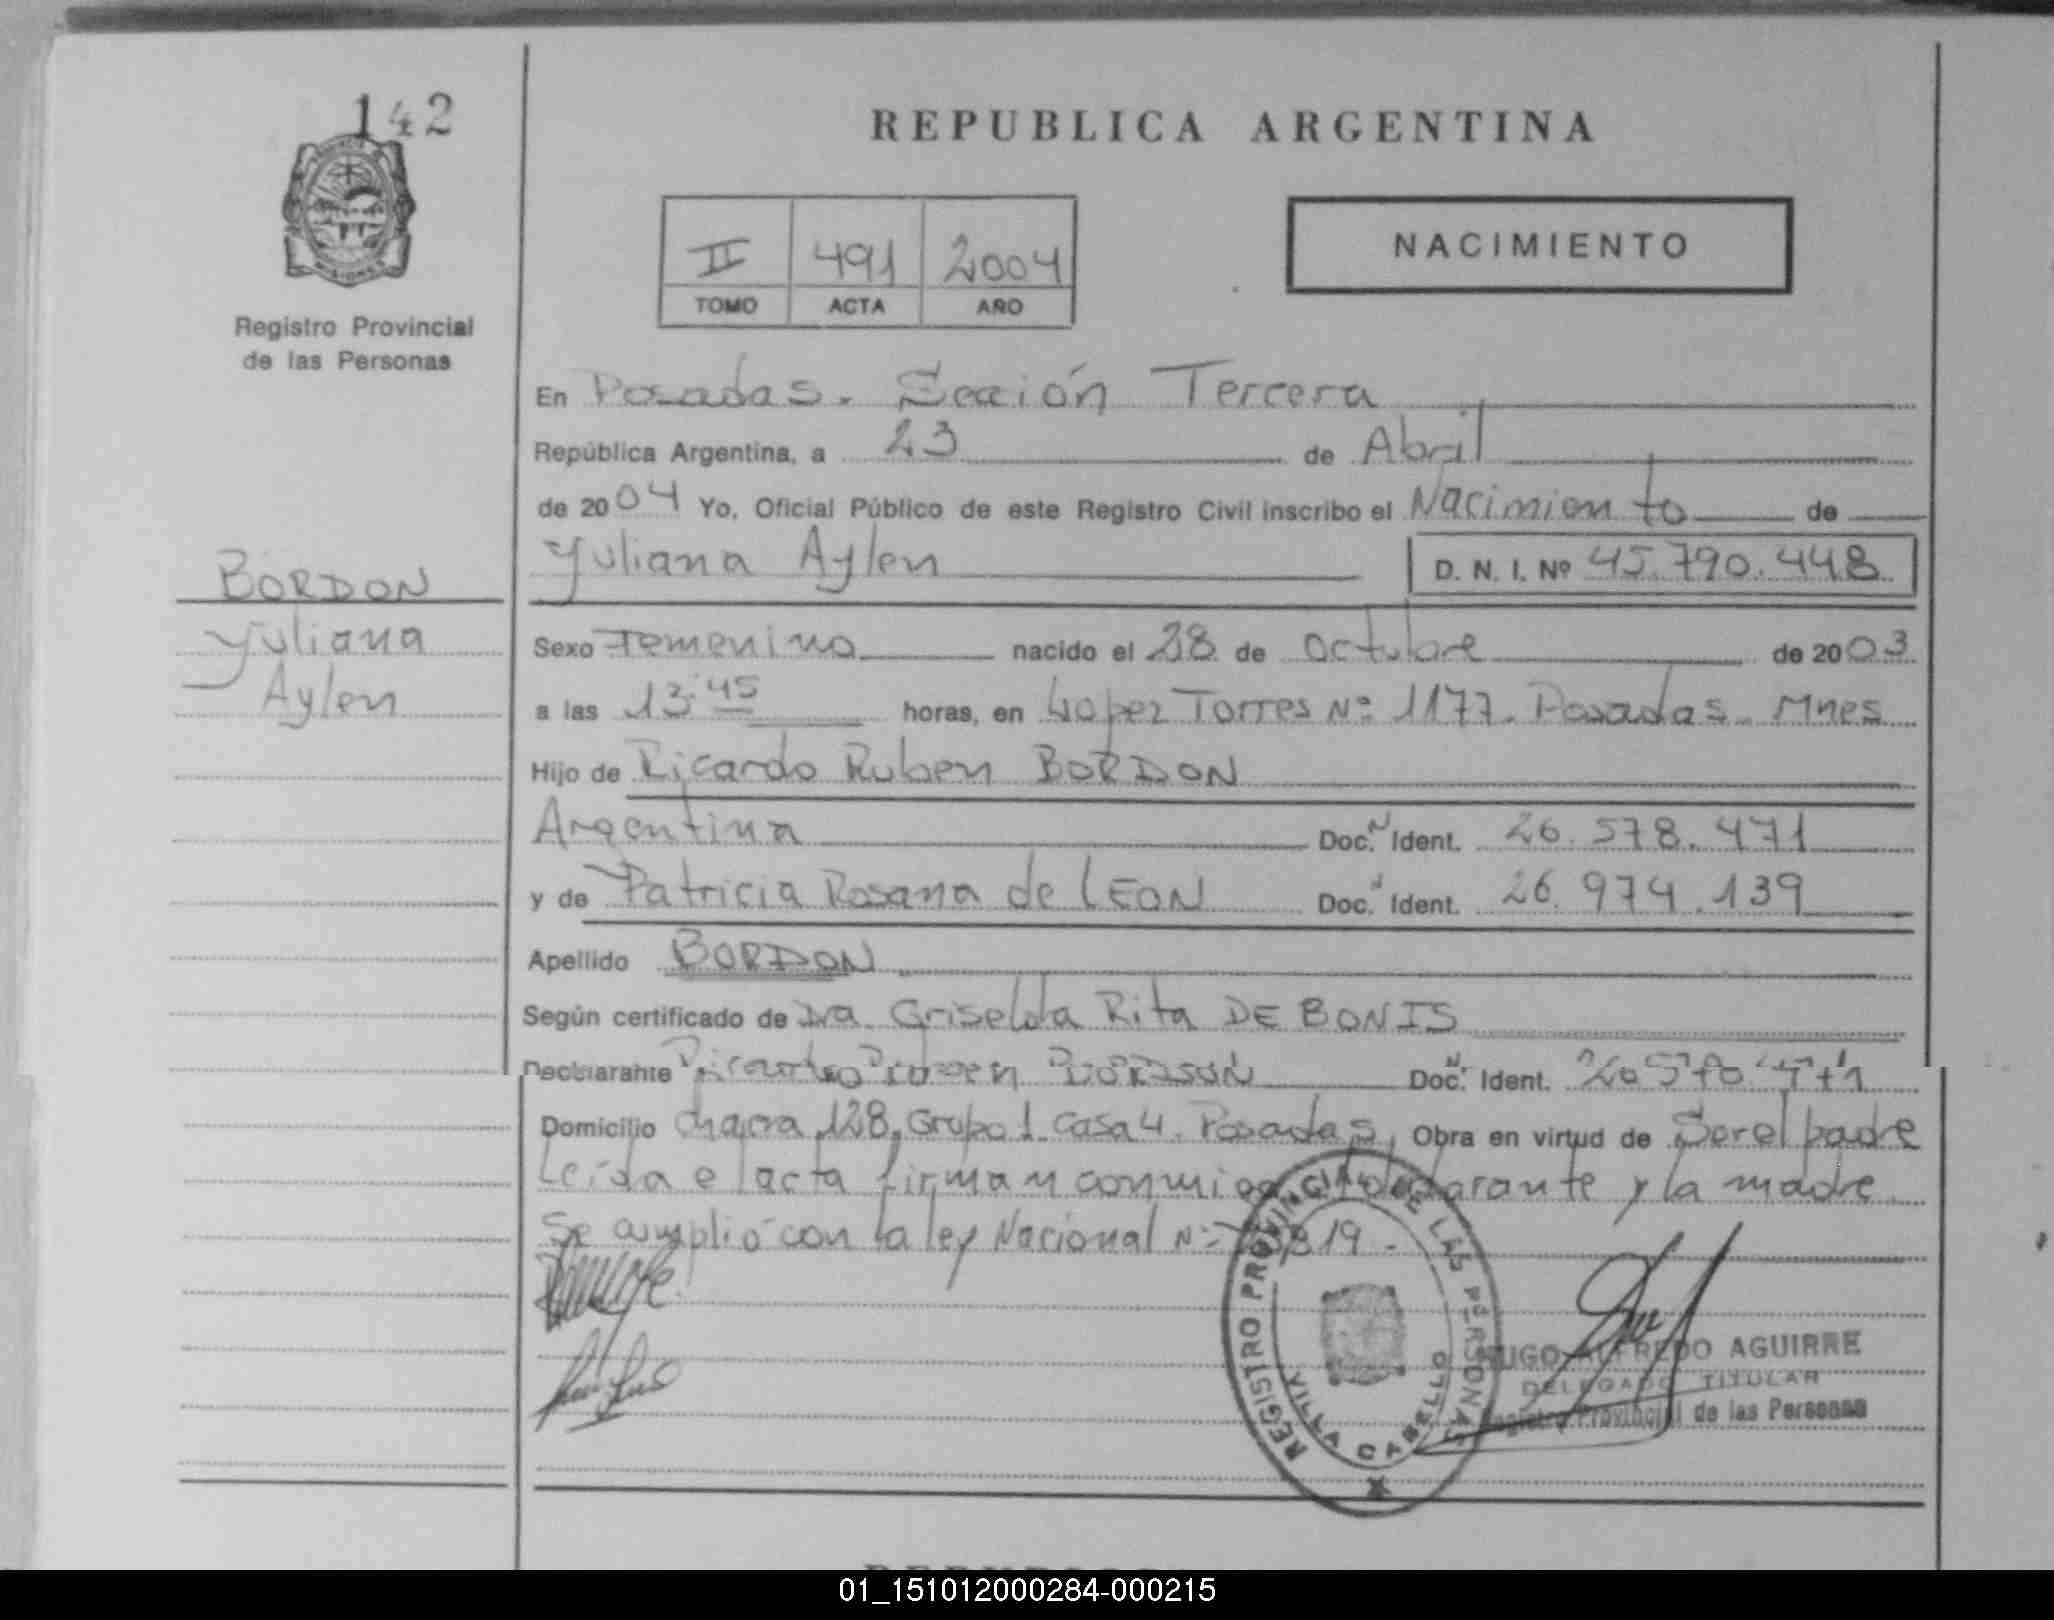 142
REPUBLICA ARGENTINA
PROVINCIA DE MISIONES
II 491 2004
TOMO ACTA AÑO
NACIMIENTO
Registro Provincial
de las Personas
En Posadas. Sección Tercera
República Argentina, a 23 de Abril
de 2004 Yo, Oficial Público de este Registro Civil inscribo el Nacimiento de
Yuliana Aylen D. N. I. Nº 45.790.448
BORDON
Yuliana
Aylen
Sexo Femenino nacido el 28 de octubre de 2003
a las 13:45 horas, en Lopez Torres Nº 1177. Posadas. Mnes
Hijo de Ricardo Ruben BORDON
Argentina Doc. N Ident. 26.578.471
y de Patricia Rosana de LEON Doc. N Ident. 26.974.139
Apellido BORDON
Según certificado de Dra. Griselda Rita DE BONIS
Declarante Ricardo Ruben BORDON Doc. N Ident. 26.578.471
Domicilio chacra 128, Grupo 1. casa 4. Posadas, Obra en virtud de Ser el padre
Leída el acta firman conmigo el declarante y la madre
Se cumplió con la ley Nacional Nº
REGISTRO PROVINCIAL DE LAS PERSONAS
VILLA CABELLO
HUGO ALFREDO AGUIRRE
DELEGADO TITULAR
Registro Provincial de las Personas
01_151012000284-000215